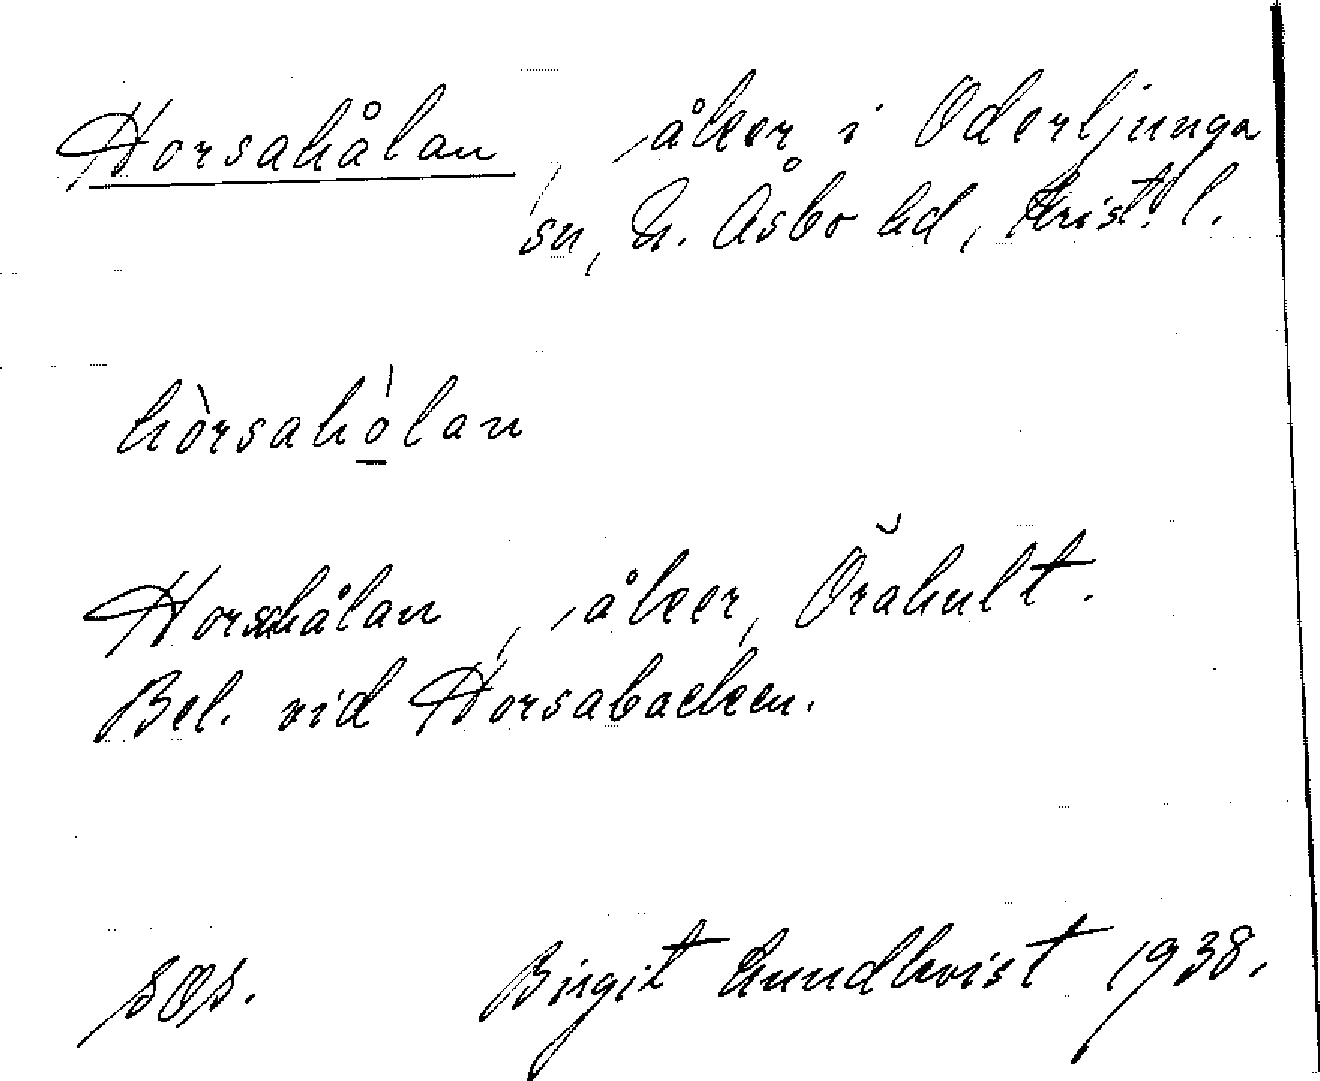 Horsahålan, åker i Oderljunga
sn, N. Åsbo hd, Krist. l.
hòrsahólan
Horsahålan, åker, Örahult.
Bel. vid Horsabacken.
Birgit Lundkvist 1938.